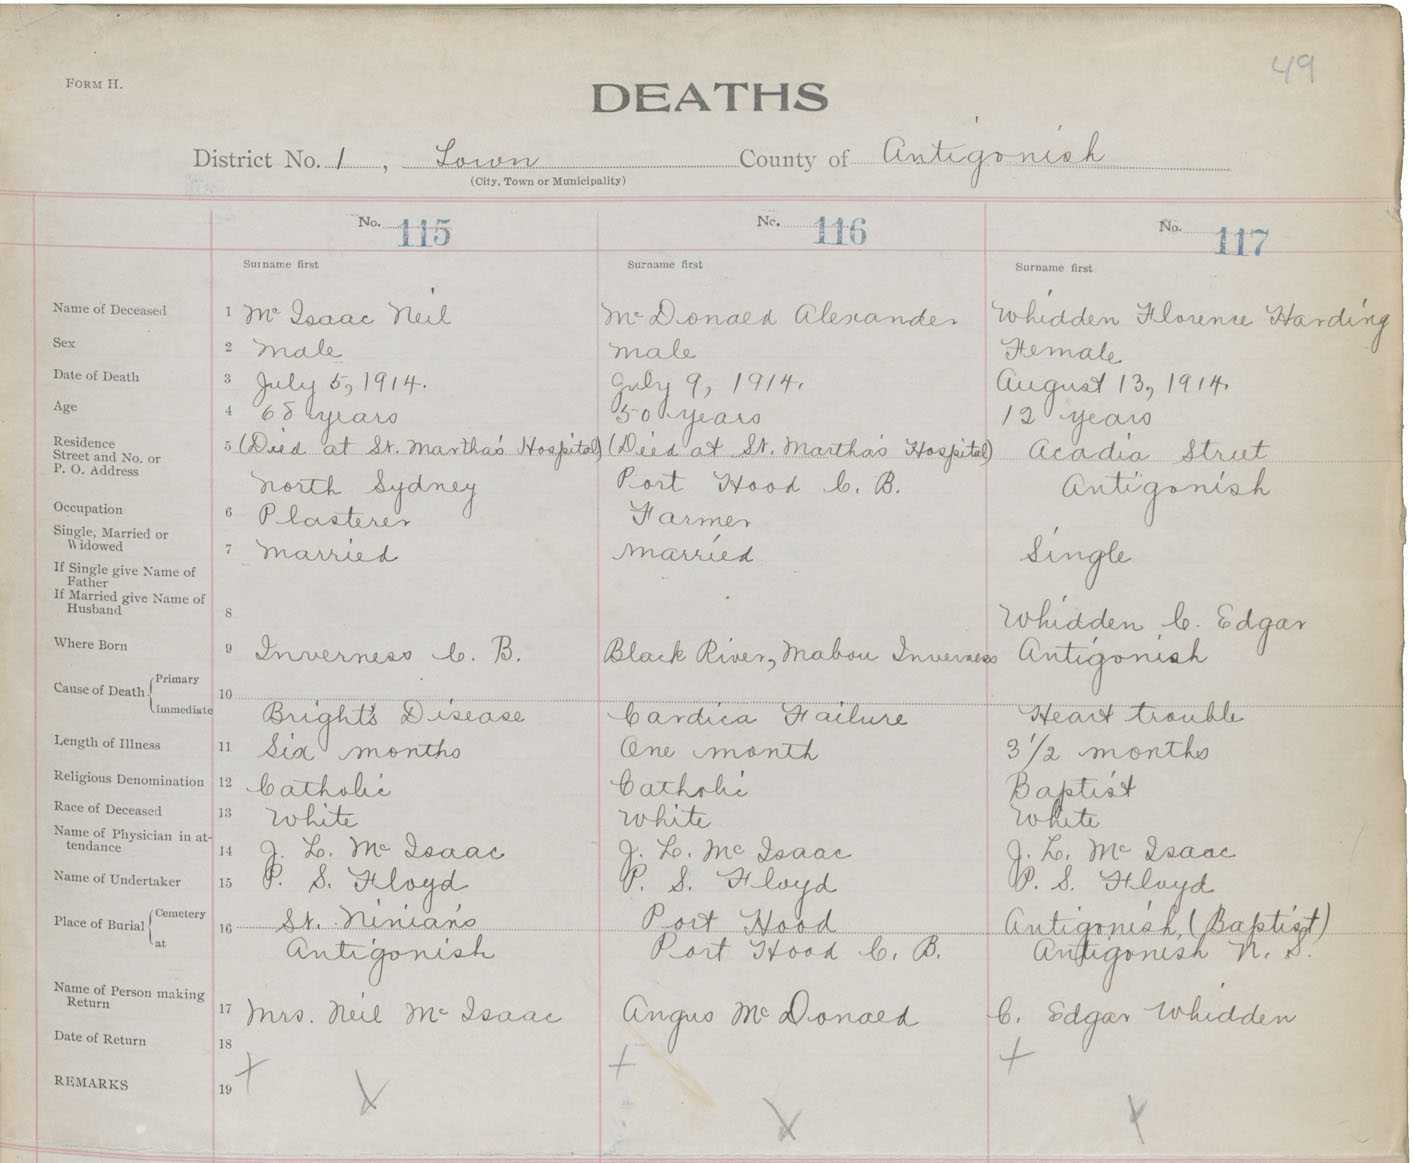 49
FORM H.
DEATHS
District No. 1, Town County of Antigonish
(City, Town or Municipality)
No. 115 No. 116 No. 117
Surname first Surname first Surname first
Name of Deceased 1 Mc Isaac Neil McDonald Alexander Whidden Florence Harding
Sex 2 Male Male Female
Date of Death 3 July 5, 1914. July 9, 1914. August 13, 1914.
Age 4 68 years 50 years 12 years
Residence Street and No. or P. O. Address 5 (Died at St. Martha's Hospital) (Died at St. Martha's Hospital) Acadia Street
North Sydney Port Hood C. B. Antigonish
Occupation 6 Plasterer Farmer
Single, Married or Widowed 7 Married Married Single
If Single give Name of Father
If Married give Name of Husband 8 Whidden C. Edgar
Where Born 9 Inverness C. B. Black River, Mabou Inverness Antigonish
Cause of Death Primary 10
Immediate Bright's Disease Cardica Failure Heart trouble
Length of Illness 11 Six months One month 3 1/2 months
Religious Denomination 12 Catholic Catholic Baptist
Race of Deceased 13 White White White
Name of Physician in attendance 14 J. L. Mc Isaac J. L. Mc Isaac J. L. Mc Isaac
Name of Undertaker 15 P. S. Floyd P. S. Floyd P. S. Floyd
Place of Burial Cemetery 16 St. Ninian's Port Hood Antigonish (Baptist)
at Antigonish Port Hood C. B. Antigonish N. S.
Name of Person making Return 17 Mrs. Neil Mc Isaac Angus McDonald C. Edgar Whidden
Date of Return 18
REMARKS 19